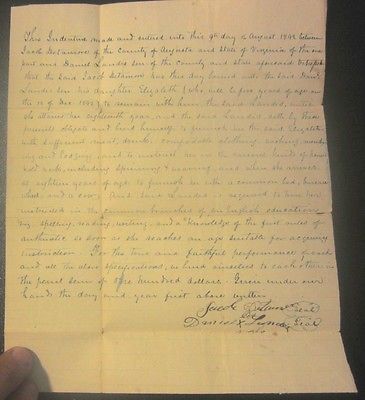 This Indenture made and entered into this 9th day of August 1842 between
Jacob of the County of Augusta and State of Virginia of the one
part and Daniel Landes Sen of the county and State aforesaid
that the said Jacob has this day bound unto the said Daniel
Landes Sen his daughter Elizabeth who will be years of age on
the 18 of Dec to remain with him, the said Landes, until
she attains her eighteenth year, and the said Landes doth by these
presents obligate and bind himself to furnish the said Elizabeth
with sufficient meat, drink, comfortable clothing, washing, mend-
ing and lodging, and to instruct her in the various kinds of house-
hold work, including spinning & weaving, and when she arrives
at eighteen years of age to furnish her with a common bed, bureau
wheel and a cow. And said Landes is required to have her
instructed in the common branches of an English education
viz spelling, reading, writing, and a knowledge of the first rules of
arithmetic as soon as she reaches an age suitable for acquiring
instruction. For the true and faithful performance of each
and all the above specifications, we bind ourselves to each other in
the penal sum of one hundred dollars. Given under our
hands the day and year first above written
Jacob Seal
Daniel Landes Seal